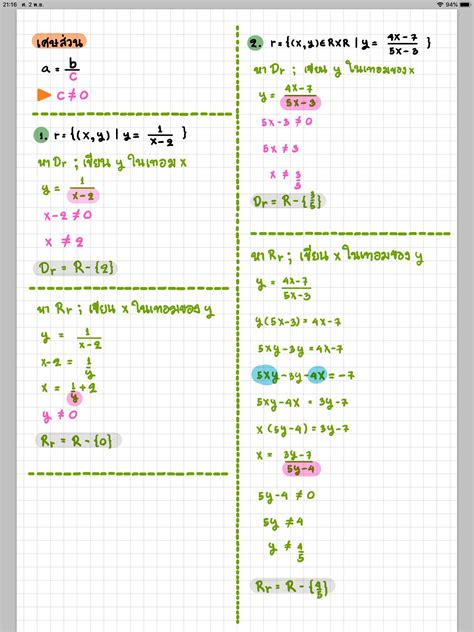 21:16 ศ. 2 พ.ย.
94%
เศษส่วน
a = b/c
c ≠ 0
1. r = {(x,y) | y = 1/(x-2) }
หา Dr ; เขียน y ในเทอม x
y = 1/(x-2)
x-2 ≠ 0
x ≠ 2
Dr = R - {2}
หา Rr ; เขียน x ในเทอมของ y
y = 1/(x-2)
x-2 = 1/y
x = 1/y + 2
y ≠ 0
Rr = R - {0}
2. r = {(x,y) ∈ R×R | y = (4x-7)/(5x-3) }
หา Dr ; เขียน y ในเทอมของ x
y = (4x-7)/(5x-3)
5x-3 ≠ 0
5x ≠ 3
x ≠ 3/5
Dr = R - {3/5}
หา Rr ; เขียน x ในเทอมของ y
y = (4x-7)/(5x-3)
y(5x-3) = 4x-7
5xy-3y = 4x-7
5xy-3y-4x = -7
5xy-4x = 3y-7
x(5y-4) = 3y-7
x = (3y-7)/(5y-4)
5y-4 ≠ 0
5y ≠ 4
y ≠ 4/5
Rr = R - {4/5}